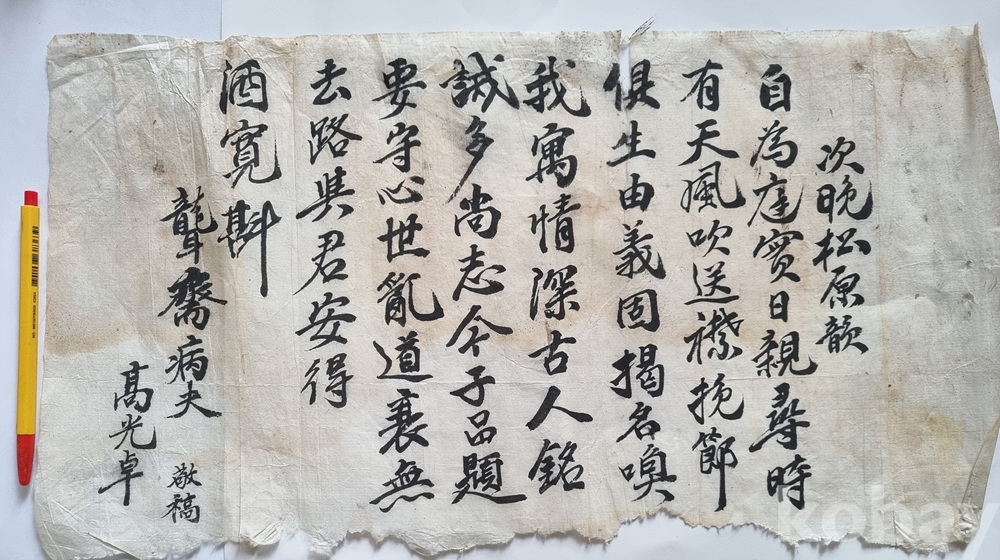 次晩松原韻
自為庭實日親尋時
有天風吹送襟挽節
俱生由義固揭名喚
我寓情深古人銘
誠多尚志今子品題
要守心世亂道衰無
去路與君安得
酒寬斟
聾齋病夫 敬稿
高光卓
koba